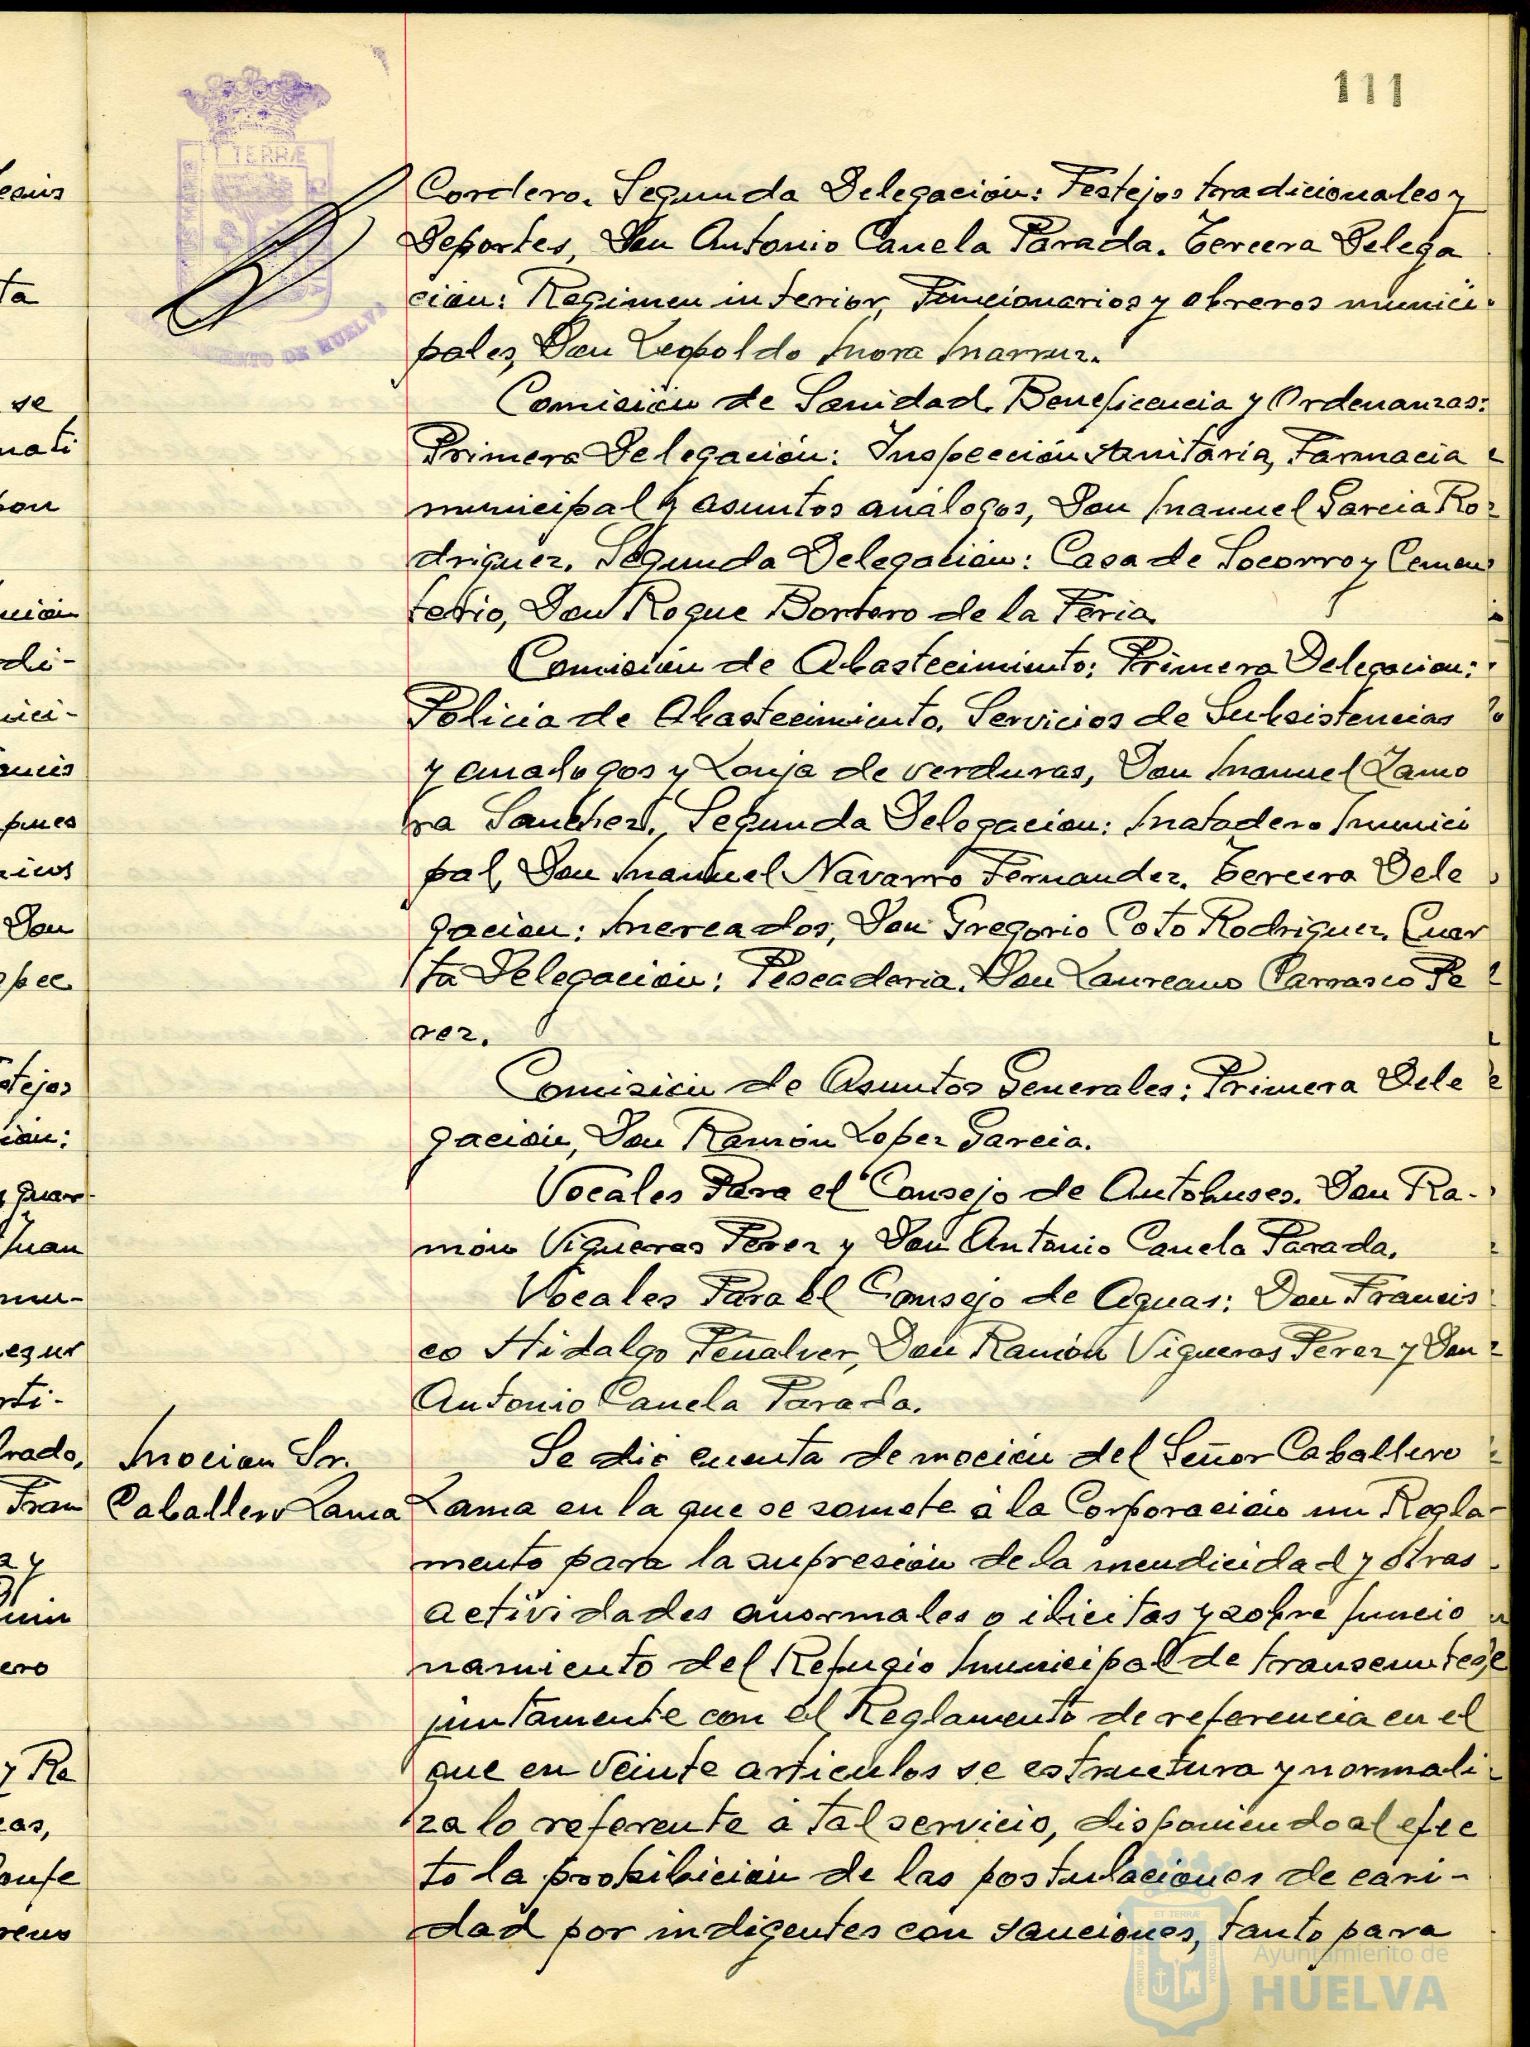 111
TERRÆ
AYUNTAMIENTO DE HUELVA
Cordero. Segunda Delegación: Festejos tradicionales y
Deportes, Don Antonio Canela Parada. Tercera Delega
ción: Regimen interior, Funcionarios y obreros munici-
pales, Don Leopoldo Mora
Comisión de Sanidad, Beneficencia y Ordenanzas:
Primera Delegación: Inspección sanitaria, Farmacia
municipal y asuntos análogos, Don Manuel Garcia Ro-
driguez. Segunda Delegación: Casa de Socorro y Cemen
terio, Don Roque Bortero de la Feria.
Comisión de Abastecimiento: Primera Delegacion:
Policia de Abastecimiento. Servicios de Subsistencias
y analogos y Lonja de verduras, Don Manuel Zamo
ra Sanchez. Segunda Delegacion: Matadero Munici
pal, Don Manuel Navarro Fernandez. Tercera Dele
gacion: Mercados, Don Gregorio Coto Rodriguez. Cuar
ta Delegación: Pescaderia. Don Laureano Carrasco Pe
rez.
Comisión de Asuntos Generales: Primera Dele
gación, Don Ramón Lopez Garcia.
Vocales Para el Consejo de Autobuses. Don Ra-
món Vigueras Perez y Don Antonio Canela Parada.
Vocales Para el Consejo de Aguas: Don Francis
co Hidalgo Peñalver, Don Ramón Vigueras Perez y Don
Antonio Canela Parada.
Mocion Sr.
Caballero Lama
Se dió cuenta de moción del Señor Caballero
Lama en la que se somete á la Corporación un Regla-
mento para la supresión de la mendicidad y otras
actividades anormales o ilicitas y sobre funcio
namiento del Refugio Municipal de transeuntes,
juntamente con el Reglamento de referencia en el
que en veinte articulos se estructura y normali-
za lo referente á tal servicio, disponiendo al efec
to la prohibición de las postulaciones de cari-
dad por indigentes con sanciones, tanto para
Ayuntamiento de
HUELVA